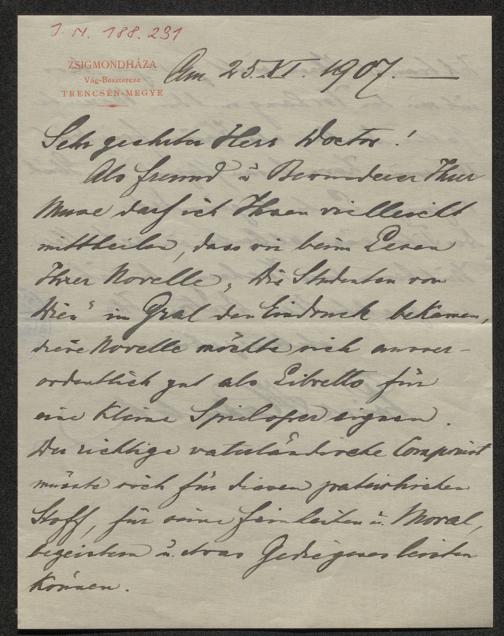 J. N. 188.231
ZSIGMONDHÁZA
Vág-Besztercze
TRENCSÉN-MEGYE
Am 25. XI. 1907.
Sehr geehrter Herr Doctor!
Als Freund u. Bewunderer Ihrer
Muse darf ich Ihnen vielleicht
mittheilen, dass wir beim Lesen
Ihrer Novelle „Die Studenten von
Wien" in Gral den Eindruck bekamen,
diese Novelle möchte sich ausser-
ordentlich gut als Libretto für
eine kleine Spieloper eignen.
Der richtige vaterländische Componist
müsste sich für diesen
Stoff, für seine Feinheiten u. Moral,
begeistern u. etwas Gediegenes leisten
können.